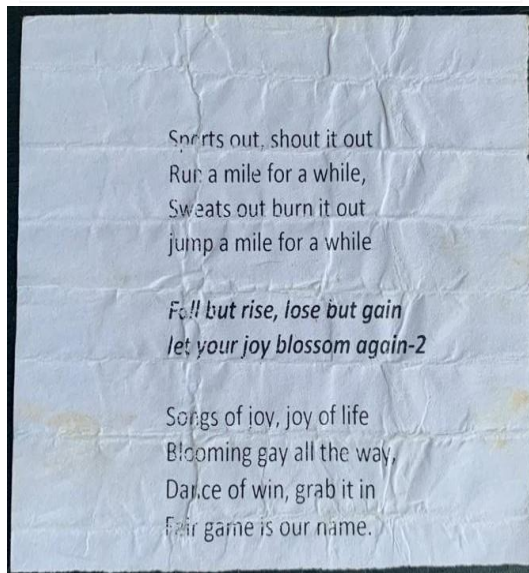 Sports out, shout it out
Run a mile for a while,
Sweats out burn it out
jump a mile for a while
Fall but rise, lose but gain
let your joy blossom again-2
Songs of joy, joy of life
Blooming gay all the way,
Dance of win, grab it in
Fair game is our name.